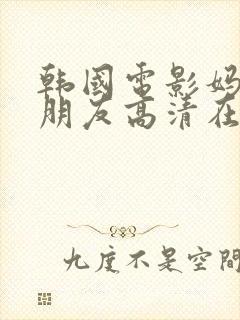 韩国电影妈
朋友高清在
九度不是空间